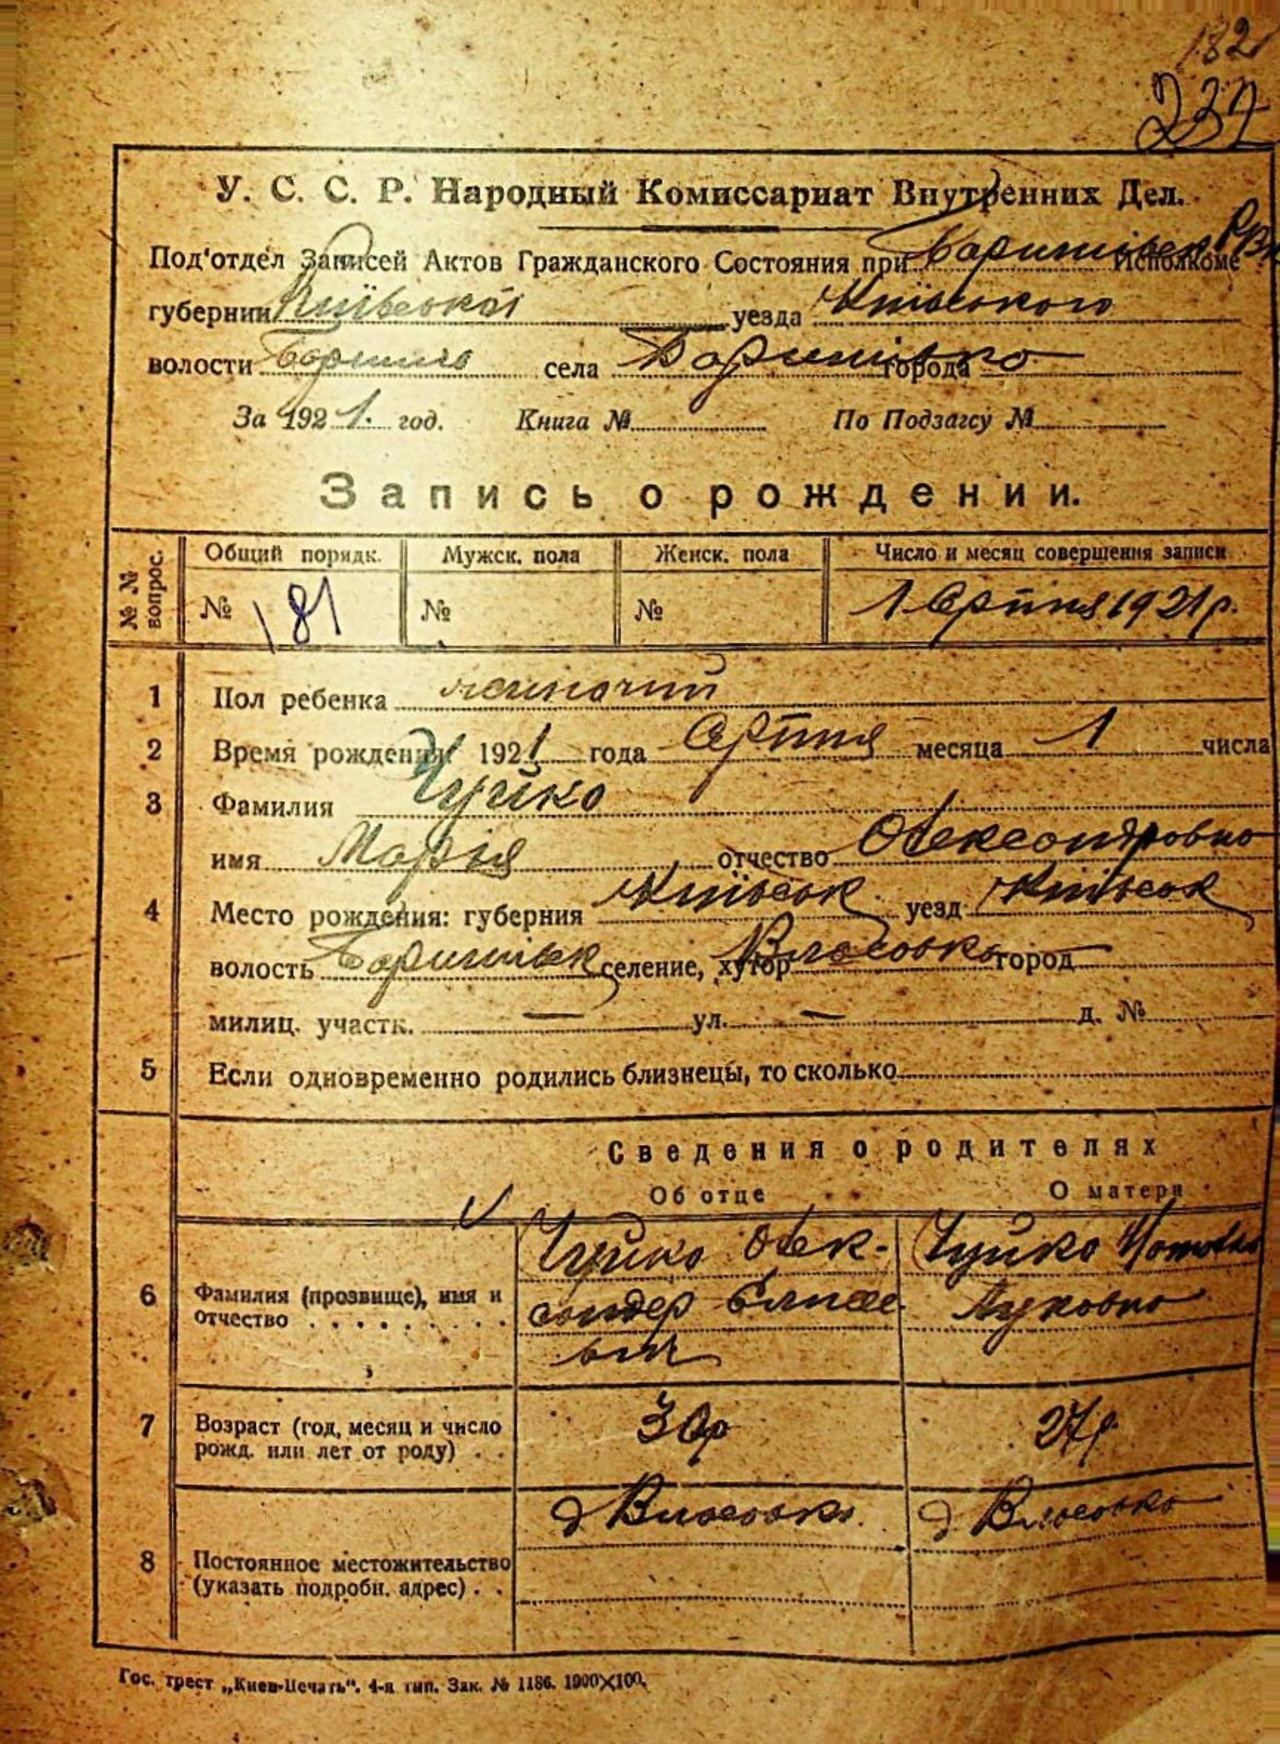 182
232
У. С. С. Р. Народный Комиссариат Внутренних Дел.
Под'отдел Записей Актов Гражданского Состояния при Баришівськ РВ Исполкоме
губернии Київської уезда Київського
волости села Баришівка города
За 1921. год. Книга № По Подзагсу №
Запись о рождении.
№ № вопрос. Общий порядк. Мужск. пола Женск. пола Число и месяц совершения записи
№ 181 № № 1 Серпня 1921 р.
1 Пол ребенка жиночий
2 Время рождения 1921 года Серпня месяца 1 числа
3 Фамилия Чуйко
имя Марія отчество Олександровна
4 Место рождения: губерния Київськ уезд Київськ
волость Баришівськ селение, хутор Власовка город
милиц. участк. — ул. — д. №
5 Если одновременно родились близнецы, то сколько
Сведения о родителях
Об отце О матери
Чуйко Олек- Чуйко
6 Фамилия (прозвище), имя и сандер Елисее Луковна
отчество . . . . . . . . . вич
7 Возраст (год, месяц и число 30р 27р
рожд. или лет от роду) . .
д Власовка д Власовка
8 Постоянное местожительство
(указать подробн. адрес) . .
Гос. трест „Киев-Печать". 4-я тип. Зак. № 1186. 1900×100.